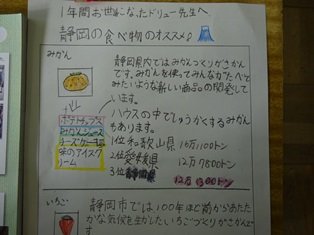 1年間お世話になったドリュー先生へ
静岡の食べ物のオススメ♪
みかん
静岡県内ではみかんづくりがさかん
です。みかんを使ってみんながたべて
みたいような新しい商品の開発して
います。
ハウスの中でしゅうかくするみかん
もあります。
1位 和歌山県 16万1100トン
2位 愛媛県 12万7800トン
3位 静岡県
ポテトチップス
みかんジュース
チーズケーキ
味のアイスク
リーム
いちご
静岡市では100年ほど前からあたた
かな気候を生かしたいちごづくりがさかんです